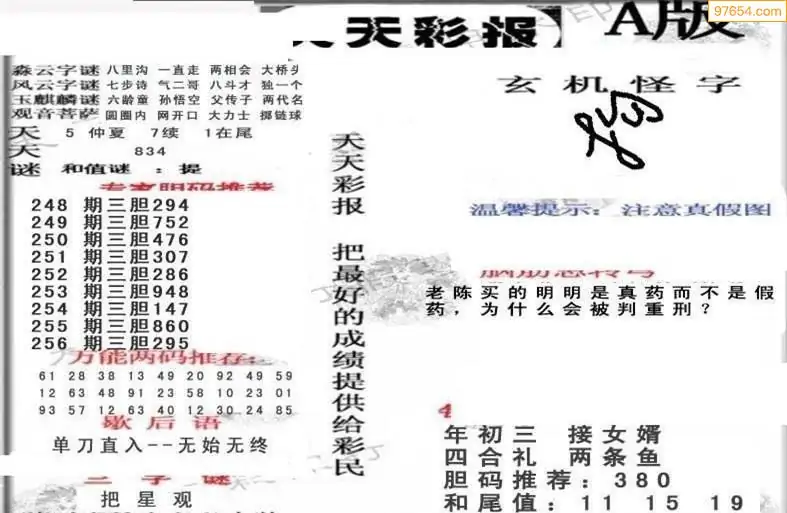 97654.com
天天彩报】 A版
森云字谜 八里沟 一直走 两相会 大桥头
风云字谜 七步诗 气二哥 八斗才 独一个
玉麒麟谜 六龄童 孙悟空 父传子 两代名
观音菩萨 圆圈内 网开口 大力士 掷链球
天 5 仲夏 7续 1在尾
天 834
谜 和值谜 : 提
专家胆码推荐
248 期三胆294
249 期三胆752
250 期三胆476
251 期三胆307
252 期三胆286
253 期三胆948
254 期三胆147
255 期三胆860
256 期三胆295
万能两码推荐:
61 28 38 13 49 20 92 49 59
12 63 48 91 23 58 10 23 01
93 57 12 63 40 12 30 24 85
歇后语
单刀直入--无始无终
三字谜
把星观
天天彩报 把最好的成绩提供给彩民
玄机怪字
温馨提示: 注意真假图
脑筋急转弯
老陈买的明明是真药而不是假
药，为什么会被判重刑？
4
年初三 接女婿
四合礼 两条鱼
胆码推荐: 380
和尾值: 11 15 19